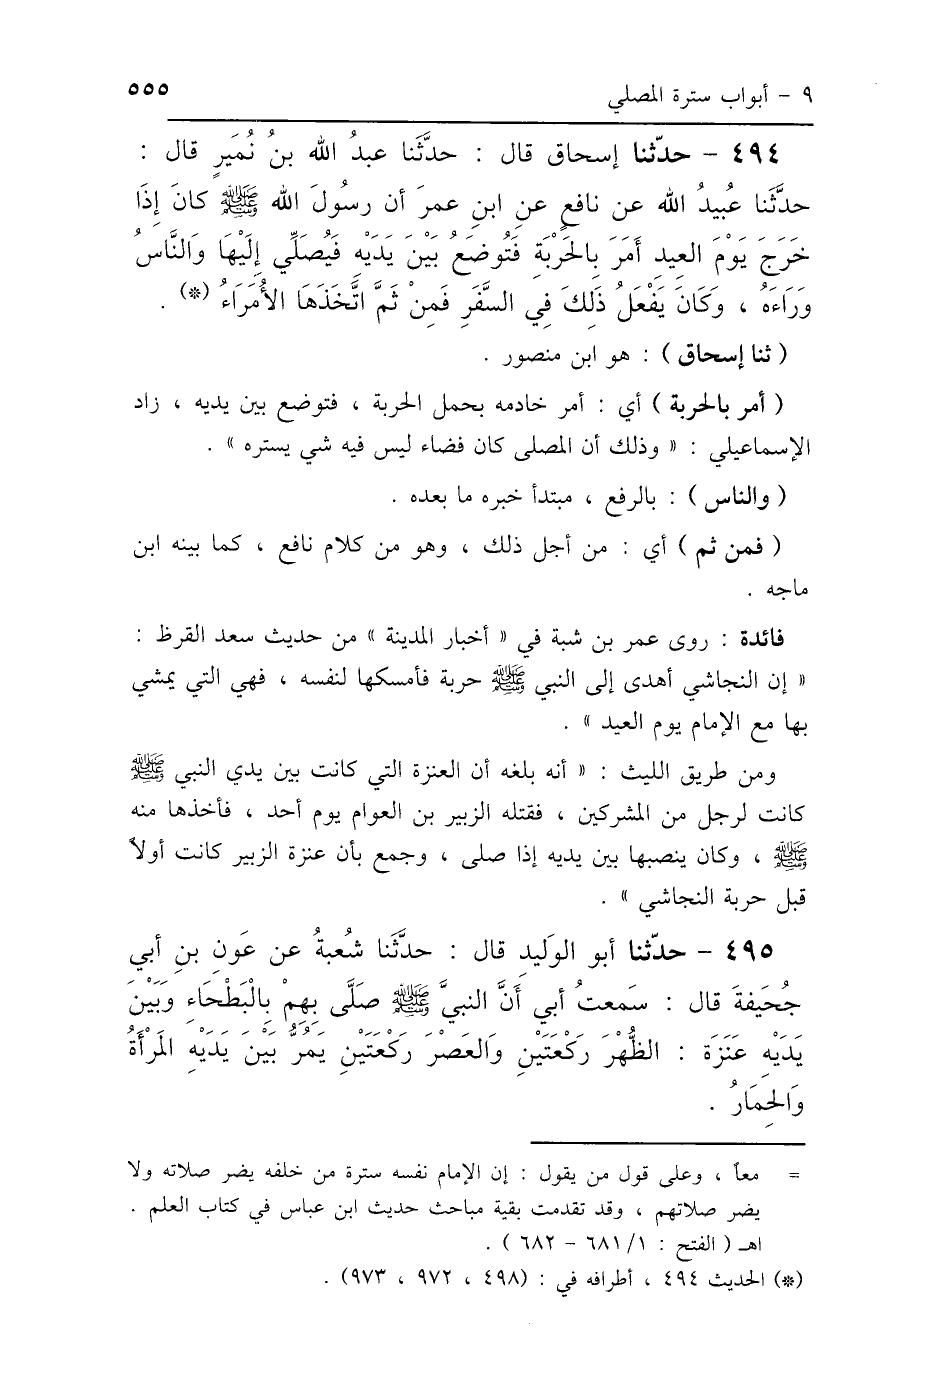 ٩ - أبواب سترة المصلي ٥٥٥
٤٩٤ - حدّثنا إسحاق قال : حدَّثَنا عبدُ الله بنُ نُمَيرٍ قال :
حدَّثَنا عُبيدُ الله عن نافعٍ عنِ ابنِ عمرَ أن رسُولَ الله ﷺ كانَ إذَا
خَرَجَ يَوْمَ العيدِ أَمَرَ بِالحَرْبَةِ فَتُوضَعُ بَيْنَ يَدَيْهِ فَيُصَلِّي إِلَيْهَا وَالنَّاسُ
وَرَاءَهُ ، وَكَانَ يَفْعَلُ ذَلِكَ فِي السَّفَرِ فَمِنْ ثَمَّ اتَّخَذَهَا الأُمَرَاءُ (*) .
( ثنا إسحاق ) : هو ابن منصور .
( أمر بالحربة ) أي : أمر خادمه بحمل الحربة ، فتوضع بين يديه ، زاد
الإسماعيلي : « وذلك أن المصلى كان فضاء ليس فيه شي يستره » .
( والناس ) : بالرفع ، مبتدأ خبره ما بعده .
( فمن ثم ) أي : من أجل ذلك ، وهو من كلام نافع ، كما بينه ابن
ماجه .
فائدة : روى عمر بن شبة في « أخبار المدينة » من حديث سعد القرظ :
« إن النجاشي أهدى إلى النبي ﷺ حربة فأمسكها لنفسه ، فهي التي يمشي
بها مع الإمام يوم العيد » .
ومن طريق الليث : « أنه بلغه أن العنزة التي كانت بين يدي النبي ﷺ
كانت لرجل من المشركين ، فقتله الزبير بن العوام يوم أحد ، فأخذها منه
ﷺ ، وكان ينصبها بين يديه إذا صلى ، وجمع بأن عنزة الزبير كانت أولاً
قبل حربة النجاشي » .
٤٩٥ - حدّثنا أبو الوَليدِ قال : حدَّثَنا شُعبةُ عن عَونِ بنِ أبي
جُحَيفةَ قال : سَمعتُ أبي أَنَّ النبيَّ ﷺ صَلَّى بِهِمْ بِالْبَطْحَاءِ وَبَيْنَ
يَدَيْهِ عَنَزَة : الظُّهْرَ رَكْعَتَيْنِ وَالعَصْرَ رَكْعَتَيْنِ يَمُرُّ بَيْنَ يَدَيْهِ المَرْأَةُ
وَالحِمَارُ .
= معاً ، وعلى قول من يقول : إن الإمام نفسه سترة من خلفه يضر صلاته ولا
يضر صلاتهم ، وقد تقدمت بقية مباحث حديث ابن عباس في كتاب العلم .
اهـ ( الفتح : ١/ ٦٨١ - ٦٨٢ ) .
(*) الحديث ٤٩٤ ، أطرافه في : (٤٩٨ ، ٩٧٢ ، ٩٧٣) .